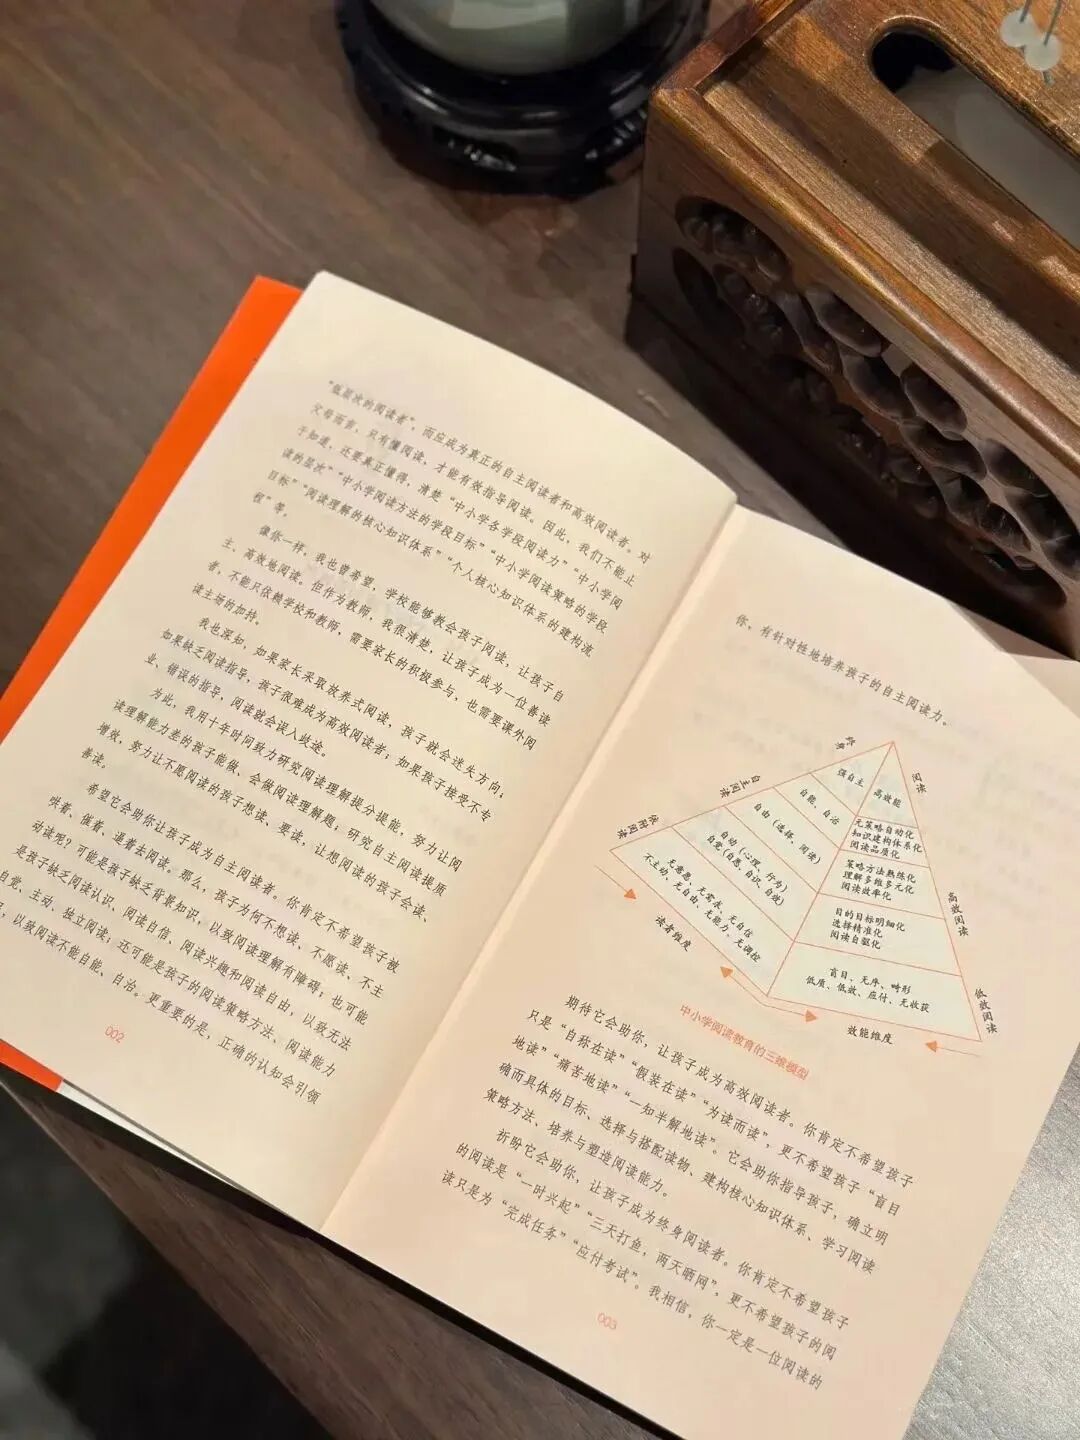 “低层次的阅读者”，而应成为真正的自主阅读者和高效阅读者。对
父母而言，只有懂阅读，才能有效指导阅读。因此，我们不能止
于知道，还要真正懂得，清楚“中小学各学段阅读力”“中小学阅
读的层次”“中小学阅读方法的学段目标”“中小学阅读策略的学段
目标”“阅读理解的核心知识体系”“个人核心知识体系的建构流
程”等。
像你一样，我也曾希望，学校能够教会孩子阅读，让孩子自
主、高效地阅读。但作为教师，我很清楚，让孩子成为一位善读
者，不能只依赖学校和教师，需要家长的积极参与，也需要课外阅
读主场的加持。
我也深知，如果家长采取放养式阅读，孩子就会迷失方向；
如果缺乏阅读指导，孩子很难成为高效阅读者；如果孩子接受不专
业、错误的指导，阅读就会误入歧途。
为此，我用十年时间致力研究阅读理解提分提能，努力让阅
读理解能力差的孩子能做、会做阅读理解题；研究自主阅读提质
增效，努力让不愿阅读的孩子想读、要读，让想阅读的孩子会读、
善读。
希望它会助你让孩子成为自主阅读者。你肯定不希望孩子被
哄着、催着、逼着去阅读。那么，孩子为何不想读、不愿读、不主
动读呢？可能是孩子缺乏背景知识，以致阅读理解有障碍；也可能
是孩子缺乏阅读认识、阅读自信、阅读兴趣和阅读自由，以致无法
自觉、主动、独立阅读；还可能是孩子的阅读策略方法、阅读能力
，以致阅读不能自能、自治。更重要的是，正确的认知会引领
002
你，有针对性地培养孩子的自主阅读力。
终身
阅读
强自主
高效能
自主阅读
自能、自治
无策略自动化
知识建构体系化
阅读品质化
自由（选择、阅读）
策略方法熟练化
理解多维多元化
阅读效率化
高效阅读
自动（心理、行为）
自觉（自愿、自识、自效）
目的目标明细化
选择精准化
阅读自驱化
被动阅读
无意愿、无需求、无自信
不主动、无自由、无能力、无调控
盲目、无序、畸形
低质、低效、应付、无收获
低效阅读
读者维度
效能维度
中小学阅读教育的三维模型
期待它会助你，让孩子成为高效阅读者。你肯定不希望孩子
只是“自称在读”“假装在读”“为读而读”，更不希望孩子“盲目
地读”“痛苦地读”“一知半解地读”。它会助你指导孩子，确立明
确而具体的目标、选择与搭配读物、建构核心知识体系、学习阅读
策略方法、培养与塑造阅读能力。
祈盼它会助你，让孩子成为终身阅读者。你肯定不希望孩子
的阅读是“一时兴起”“三天打鱼，两天晒网”，更不希望孩子的阅
读只是为“完成任务”“应付考试”。我相信，你一定是一位阅读的
003